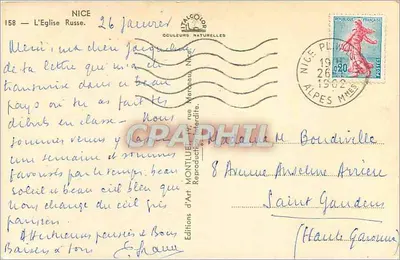 NICE
158 — L'Eglise Russe.
26 Janvier
ITALCOLOR
COULEURS NATURELLES
Merci, ma chère
de ta lettre qui m'a
transmise dans ce beau
pays où tu as fait tes
débuts en classe - Nous
sommes venus y
une semaine et sommes
favorisés par le temps, beau
soleil et beau ciel bleu qui
nous change du ciel gris
parisien.
Affectueuses pensées & Bons
Baisers à tous
Editions d'Art MONTLUET, rue Marceau, Nice
Reproduction interdite.
NICE
26
1962
ALPES MMES
REPUBLIQUE FRANÇAISE
0,20
POSTES
CPAPHIL
Madame M. Boudiville
8 Avenue Anselme Arrieu
Saint Gaudens
(Haute Garonne)